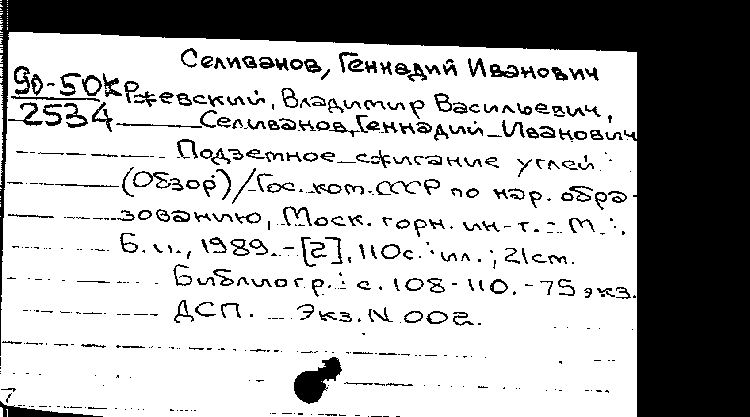 Селиванов, Геннадий Иванович
90-50К Ржевский, Владимир Васильевич,
2534 Селиванов, Геннадий Иванович
Подземное сжигание углей:
(Обзор)/Гос. ком. СССР по нар. обра-
зованию, Моск. горн. ин-т. - М.:
Б. и., 1989. - [2], 110с.: ил.; 21см.
Библиогр.: с. 108-110. - 75 экз.
ДСП. Экз. N 002.